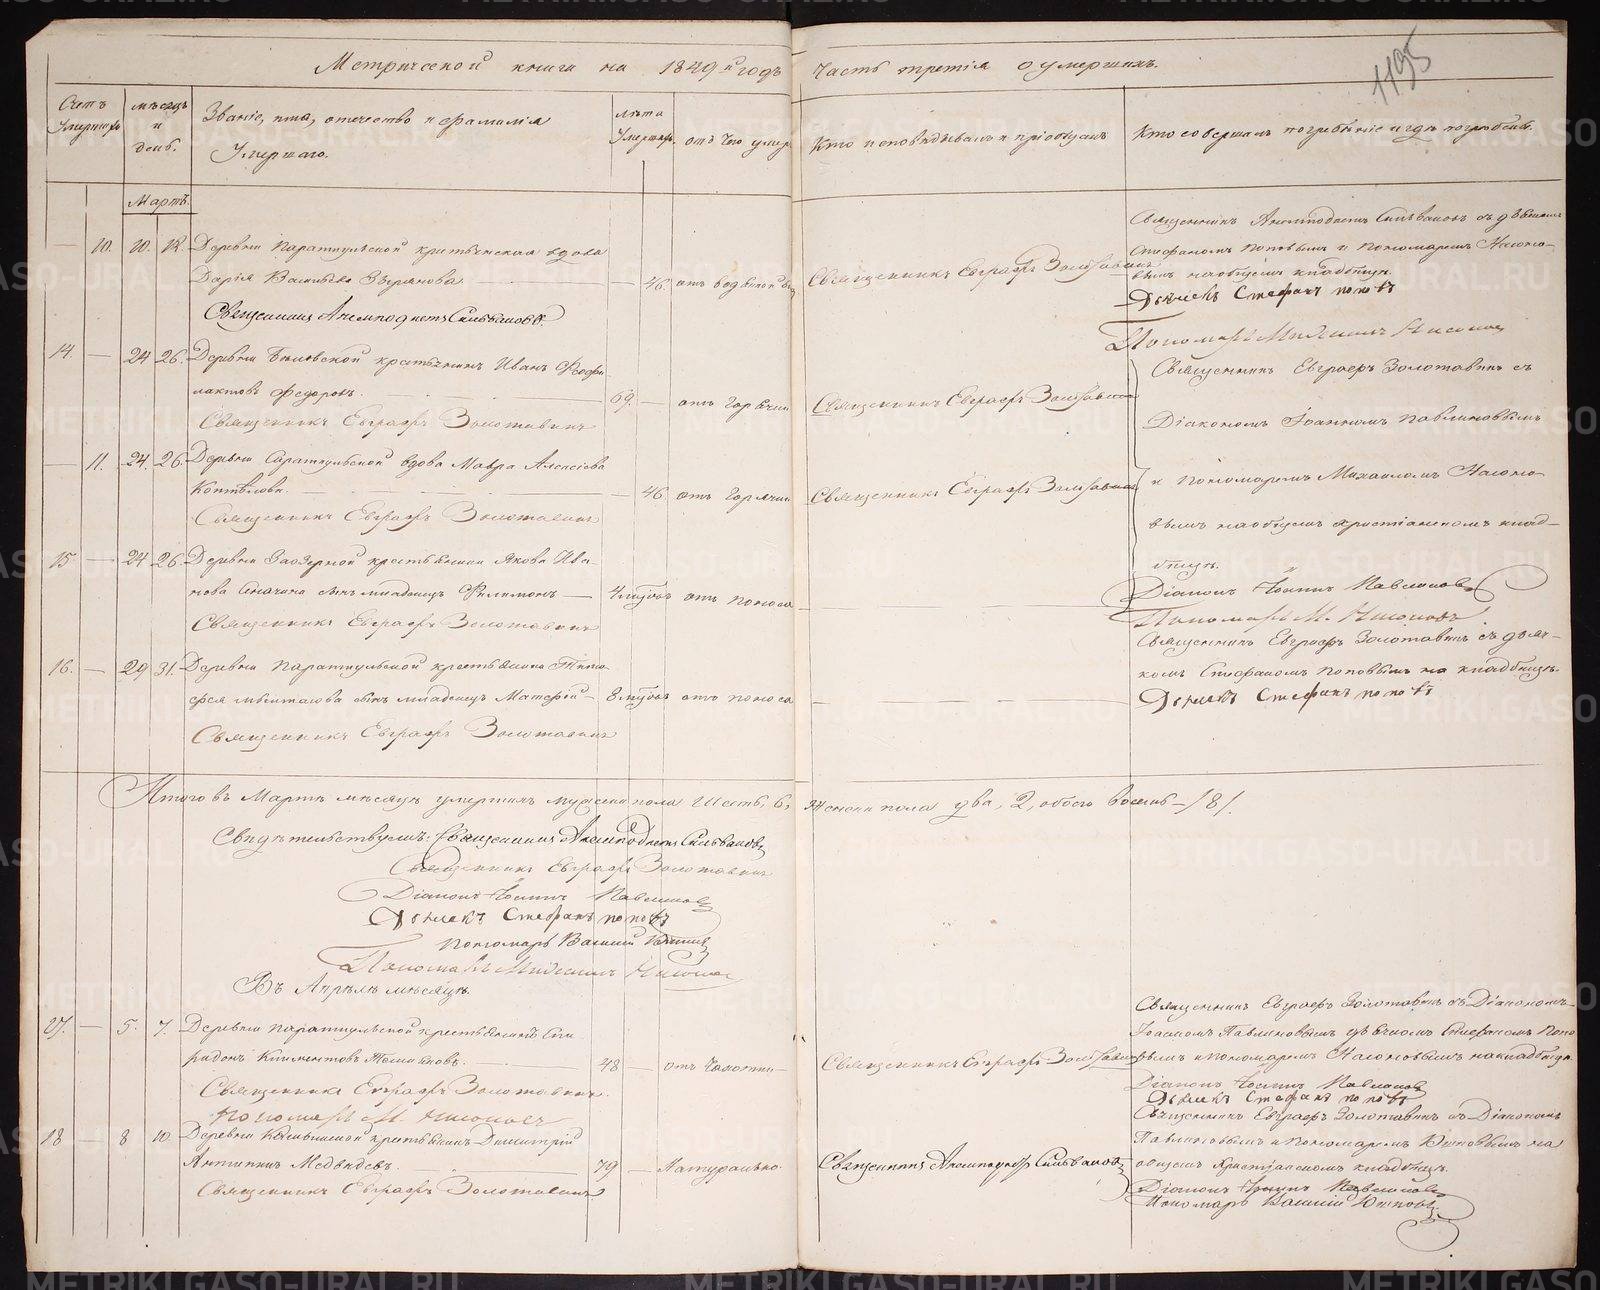 Метрической книги на 1849й годъ
Часть третія о умершихъ.
1195
Счетъ Умершихъ
мѣсяцъ и день.
Званіе, имя, отчество и фамилія Умершаго.
лѣта Умершихъ
отъ чего умеръ
Кто исповѣдывалъ и пріобщалъ
Кто совершалъ погребеніе и гдѣ погребены.
Мартъ.
10. 10. 12. Деревни Параткульской крестьянская вдова
Дарія Васильева
46. отъ водяной
Священникъ Евграфъ Золотавинъ
Священникъ Анемподистъ Сильвановъ съ дьячкомъ
Стефаномъ Поповымъ и пономаремъ
на общемъ кладбищѣ.
Дьячекъ Стефанъ поповъ
Пономарь
Священникъ Анемподистъ Сильвановъ.
14. 24 26. Деревни крестьянинъ Иванъ Феофи-
лактовъ Федоровъ.
69. отъ Горячки
Священникъ Евграфъ Золотавинъ
Священникъ Евграфъ Золотавинъ
Священникъ Евграфъ Золотавинъ съ
Діакономъ Іоанномъ Павлиновымъ
и пономаремъ Михаиломъ
вымъ на общемъ христіанскомъ клад-
бищѣ.
11. 24. 26. Деревни вдова Мавра Алексіева
Коптѣлова.
46. отъ Горячки
Священникъ Евграфъ Золотавинъ
Священникъ Евграфъ Золотавинъ
15 24 26. Деревни Заозерной крестьянина Якова Ива-
нова сынъ младенецъ Филимонъ
4 отъ поноса
Священникъ Евграфъ Золотавинъ
Діаконъ Іоаннъ Павлиновъ
Пономарь М.
16. 29 31. Деревни Параткульской крестьянина Тимо-
фея сынъ младенецъ Матфей
8 отъ поноса
Священникъ Евграфъ Золотавинъ
Священникъ Евграфъ Золотавинъ съ дьяч-
комъ Стефаномъ Поповымъ на кладбищѣ.
Дьячекъ Стефанъ поповъ
Итого въ Мартѣ мѣсяцѣ умершихъ мужеска пола Шесть, 6, Женска пола два, 2, обоего восемь /8/.
Свидѣтельствуемъ: Священникъ Анемподистъ Сильвановъ
Священникъ Евграфъ Золотавинъ
Діаконъ Іоаннъ Павлиновъ
Дьячекъ Стефанъ поповъ
пономарь Василій
Пономарь
Въ Апрѣлѣ мѣсяцѣ.
17. 5. 7. Деревни Параткульской крестьянинъ Спи-
ридонъ Климентовъ
48 отъ Чахотки
Священникъ Евграфъ Золотавинъ
Священникъ Евграфъ Золотавинъ съ Діакономъ
Іоанномъ Павлиновымъ дьячкомъ Стефаномъ Попо-
вымъ и пономаремъ на кладбищѣ.
Діаконъ Іоаннъ Павлиновъ
Дьячекъ Стефанъ поповъ
Священникъ Евграфъ Золотавинъ.
Пономарь М.
18 8 10. Деревни крестьянинъ Димитрій
Антипинъ Медвѣдевъ.
79 Натурально
Священникъ Анемподистъ Сильвановъ
Священникъ Евграфъ Золотавинъ съ Діакономъ
Павлиновымъ и пономаремъ Юшковымъ на
общемъ христіанскомъ кладбищѣ.
Діаконъ Іоаннъ Павлиновъ
Пономарь Василій Юшковъ
Священникъ Евграфъ Золотавинъ
METRIKI.GASO-URAL.RU